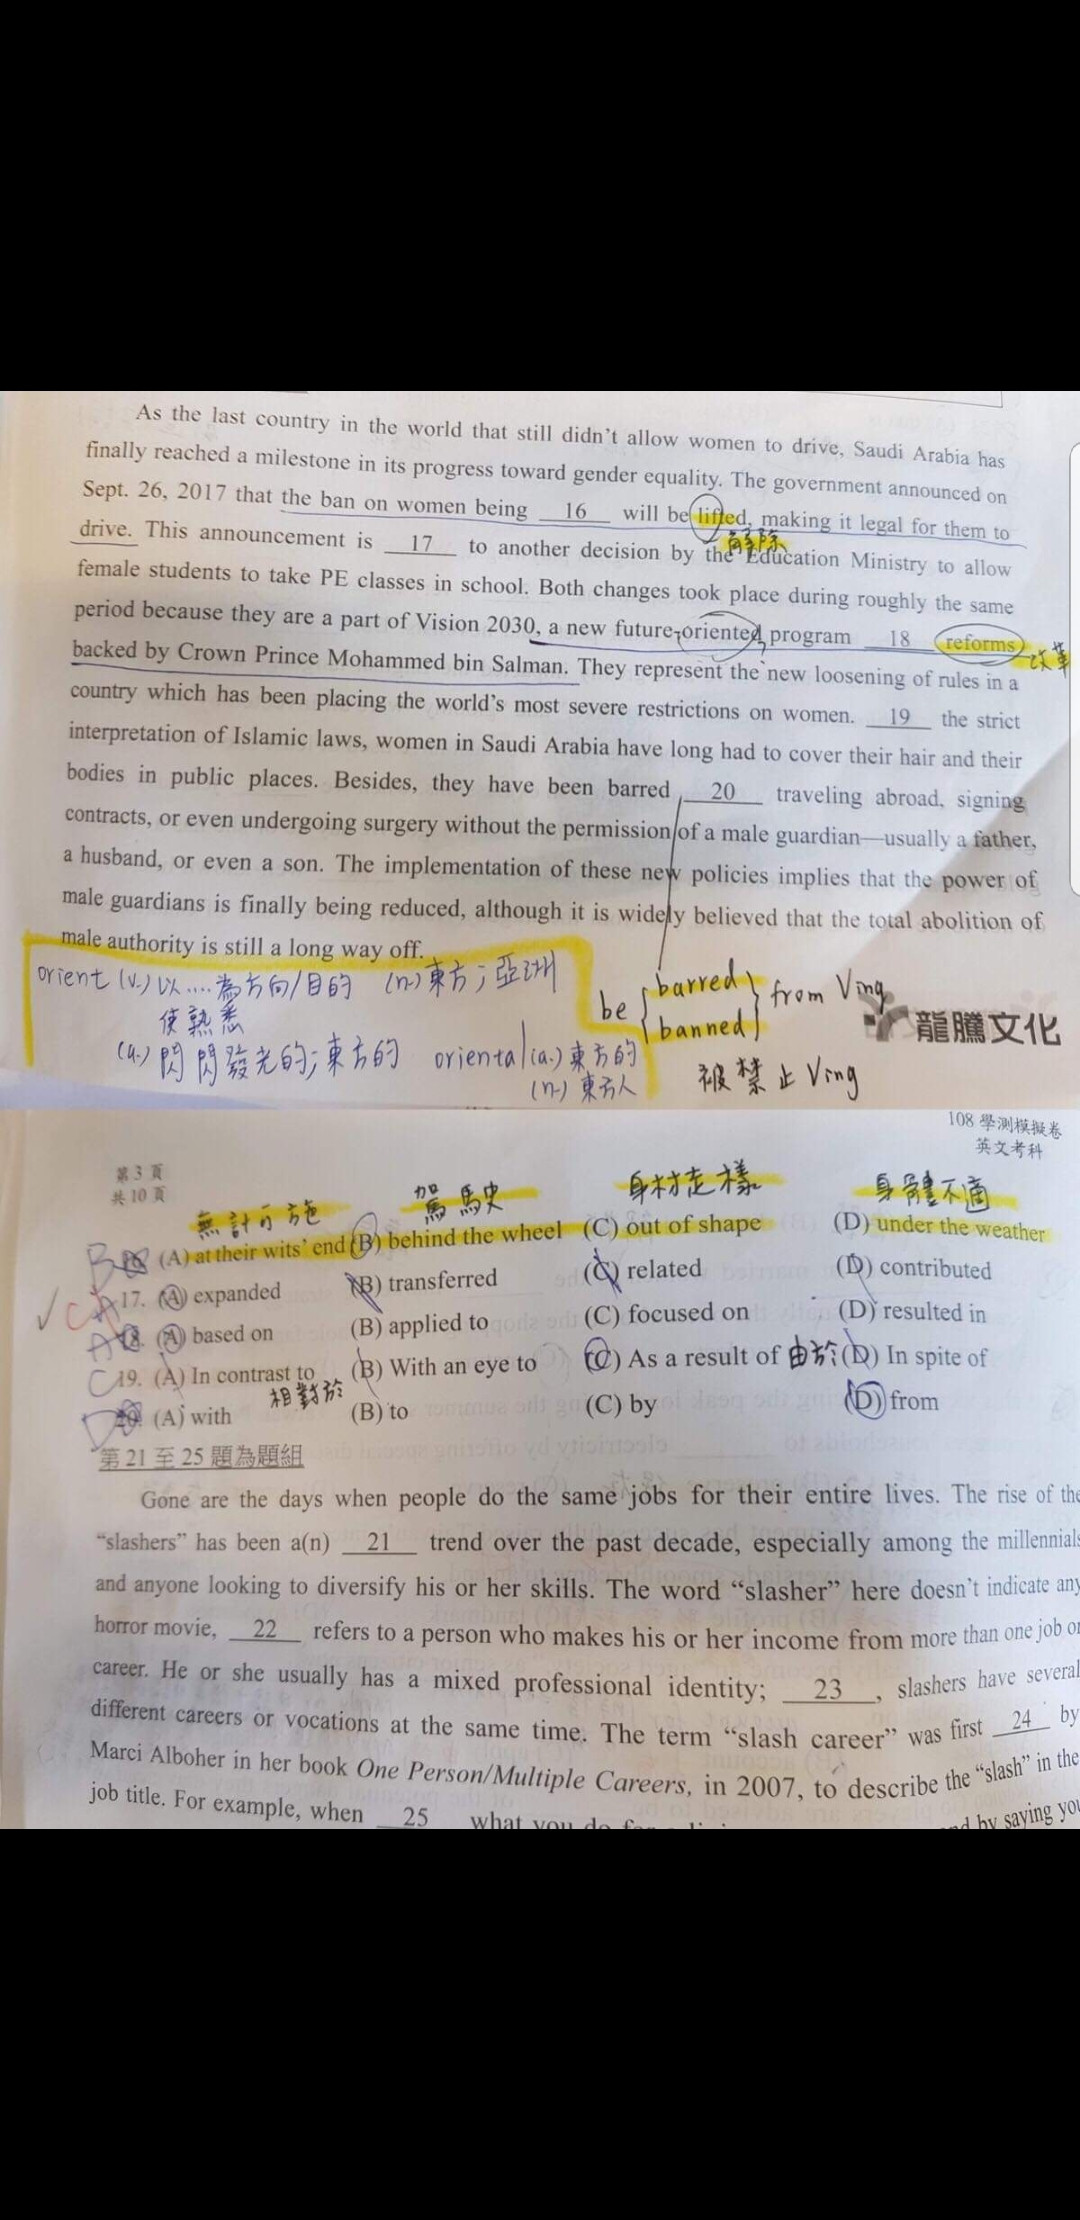 As the last country in the world that still didn't allow women to drive, Saudi Arabia has
finally reached a milestone in its progress toward gender equality. The government announced on
Sept. 26, 2017 that the ban on women being 16 will be lifted, making it legal for them to
解除
drive. This announcement is 17 to another decision by the Education Ministry to allow
female students to take PE classes in school. Both changes took place during roughly the same
period because they are a part of Vision 2030, a new future-oriented program 18 reforms
改革
backed by Crown Prince Mohammed bin Salman. They represent the new loosening of rules in a
country which has been placing the world's most severe restrictions on women. 19 the strict
interpretation of Islamic laws, women in Saudi Arabia have long had to cover their hair and their
bodies in public places. Besides, they have been barred 20 traveling abroad, signing
contracts, or even undergoing surgery without the permission of a male guardian—usually a father,
a husband, or even a son. The implementation of these new policies implies that the power of
male guardians is finally being reduced, although it is widely believed that the total abolition of
male authority is still a long way off.
orient (v.) 以....為方向/目的 (n.) 東方；亞洲
使熟悉
(a.) 閃閃發光的;東方的 oriental (a.) 東方的
(n.) 東方人
be { barred banned } from Ving
被禁止 Ving
龍騰文化
108 學測模擬卷
英文考科
第 3 頁
共 10 頁
無計可施 駕駛 身材走樣 身體不適
B 16. (A) at their wits' end (B) behind the wheel (C) out of shape (D) under the weather
C 17. (A) expanded (B) transferred (C) related (D) contributed
A 18. (A) based on (B) applied to (C) focused on (D) resulted in
C 19. (A) In contrast to (B) With an eye to (C) As a result of 由於 (D) In spite of
相對於
D 20. (A) with (B) to (C) by (D) from
第 21 至 25 題為題組
Gone are the days when people do the same jobs for their entire lives. The rise of the
“slashers” has been a(n) 21 trend over the past decade, especially among the millennials
and anyone looking to diversify his or her skills. The word “slasher” here doesn't indicate any
horror movie, 22 refers to a person who makes his or her income from more than one job or
career. He or she usually has a mixed professional identity; 23 , slashers have several
different careers or vocations at the same time. The term “slash career” was first 24 by
Marci Alboher in her book One Person/Multiple Careers, in 2007, to describe the “slash” in the
job title. For example, when 25 what you do by saying you